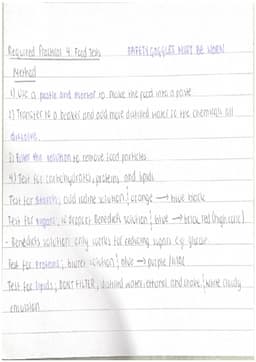 Required Practical 4: Food Tests SAFETY GOGGLES MUST BE WORN
Method
1) Use a pestle and mortar to make the food into a paste
2) Transfer to a beaker and add more distilled water so the chemicals all
dissolve.
3) Filter the solution to remove food particles
4) Test for carbohydrates, proteins and lipids
Test for starch; add iodine solution } orange → blue black
Test for sugars; 10 drops of Benedicts solution } blue → brick red (high conc)
- Benedicts solution only works for reducing sugars e.g glucose
Test for proteins; biuret solution } blue → purple / lilac
Test for lipids; DONT FILTER, distilled water, ethanol and shake } white cloudy
emulsion